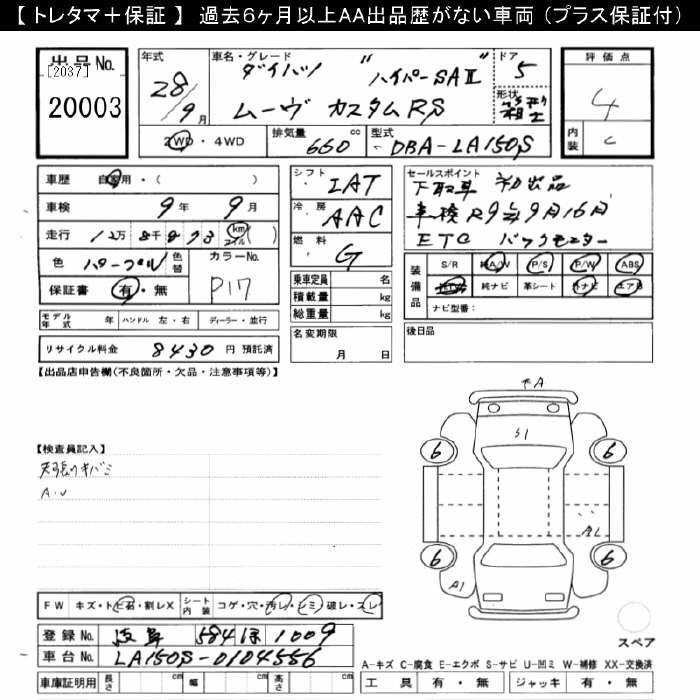 【 トレタマ＋保証 】 過去６ヶ月以上ＡＡ出品歴がない車両 （プラス保証付）
出品No.
[2037]
20003
年式 28/9月
車名・グレード ダイハツ "ハイパーSAⅡ"
ムーヴ カスタムRS
ドア 5
形状
2WD・4WD
排気量 660 cc
型式 DBA-LA150S
評価点 4
内装 C
車歴 自家用・( )
車検 9年 9月
走行 12万 8千 8 7 3 km マイル ( )
色 パープル 色替
カラーNo. P17
保証書 有・無
シフト IAT
冷房 AAC
燃料 G
乗車定員 名
積載量 kg
総重量 kg
名変期限 月 日
セールスポイント
下取車 初出品
車検R9年9月16日
ETC バックモニター
装備品 S/R 純A/W P/S P/W ABS
純TV 純ナビ 革シート 外ナビ エアB
ナビ型番:
後日品
モデル年式 年 ハンドル 左・右 ディーラー・並行
リサイクル料金 8430 円 預託済
【出品店申告欄(不良箇所・欠品・注意事項等)】
【検査員記入】
天張りキバミ
A・U
下A
S1
6
6
6
6
A1
A1
スペア
FW キズ・トビ石・割レX シート内装 コゲ・穴・汚レ・シミ・破レ・スレ
登録No. 岐阜 584 ほ 1009
車台No. LA150S-0104556
車庫証明用 長さ cm 幅 cm 高さ cm
A-キズ C-腐食 E-エクボ S-サビ U-凹ミ W-補修 XX-交換済
工具 有・無 ジャッキ 有・無